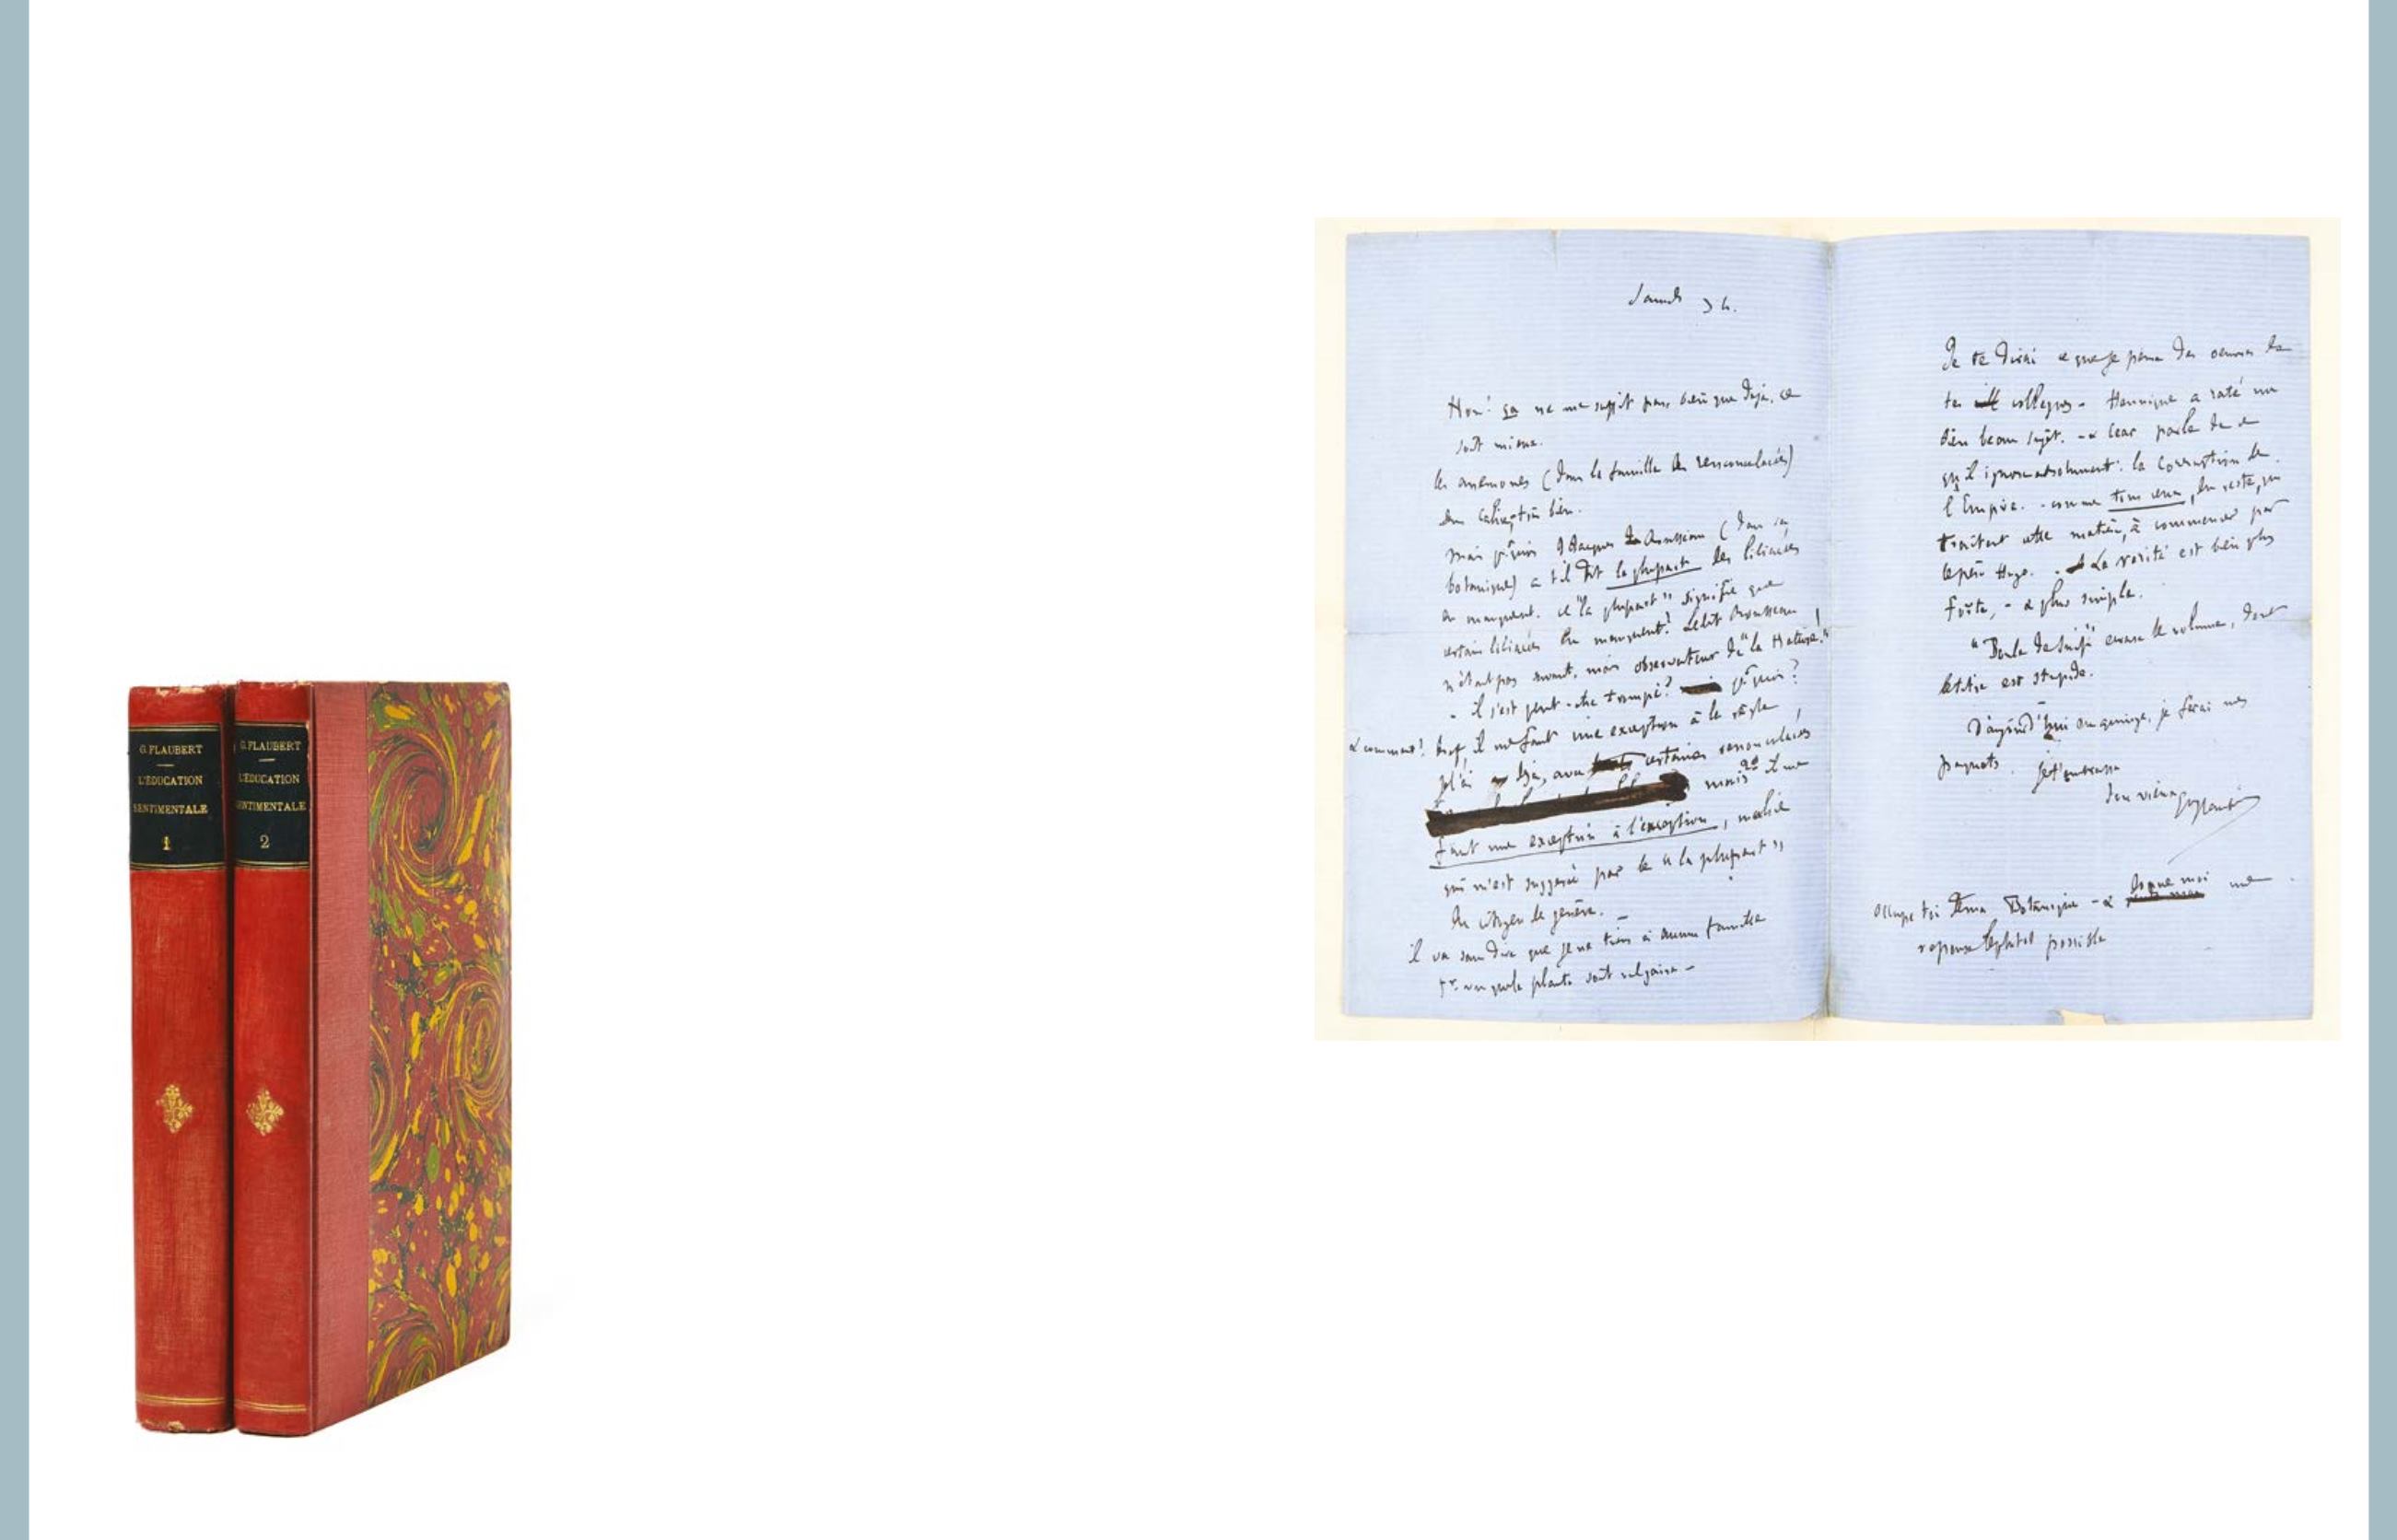 G. FLAUBERT
L'ÉDUCATION
SENTIMENTALE
1
G. FLAUBERT
L'ÉDUCATION
SENTIMENTALE
2
Samedi 3 h.
Hon! ça ne me suffit pas, bien que déjà, ce
soit mieux.
les anémones (dans la famille des renonculacées)
bien.
mais pquoi J Jacques Rousseau (dans sa
botanique) a t'il dit la plupart des liliacées
en manquent. ce "la plupart" signifie que
certaines liliacées en manquent? Ledit Rousseau
n'était pas savant, mais observateur de "la Nature!"
- il s'est peut-être trompé? pquoi?
& comment! bref, il me faut une exception à la règle,
je l'ai déjà, avec certaines renonculacées
mais il me
faut une exception à l'exception, malice
qui m'est suggérée par le "la plupart"
du citoyen de genève.
il va sans dire que je ne tiens à aucune famille
pr. vu que la plante soit vulgaire -
Je te dirai ce que je pense des oeuvres de
tes collègues - Hennique a raté un
bien beau sujet. - & Ceard parle de ce
qu'il ignore absolument: la corruption de
l'Empire. - comme tous ceux, du reste, qui
traitent cette matière, à commencer par
le père Hugo. - La vérité est bien plus
forte, - & plus simple.
"Boule de suif" écrase le volume, dont
le titre est stupide.
D'aujourd'hui en quinze, je ferai mes
paquets. je t'embrasse
ton vieux Gve Flaubert
Occupe toi de ma Botanique - & que moi une
réponse le plutot possible